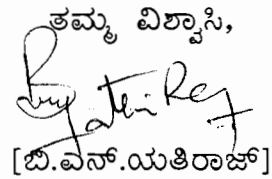 ತಮ್ಮ ವಿಶ್ವಾಸಿ,
[ಬಿ.ಎನ್.ಯತಿರಾಜ್]